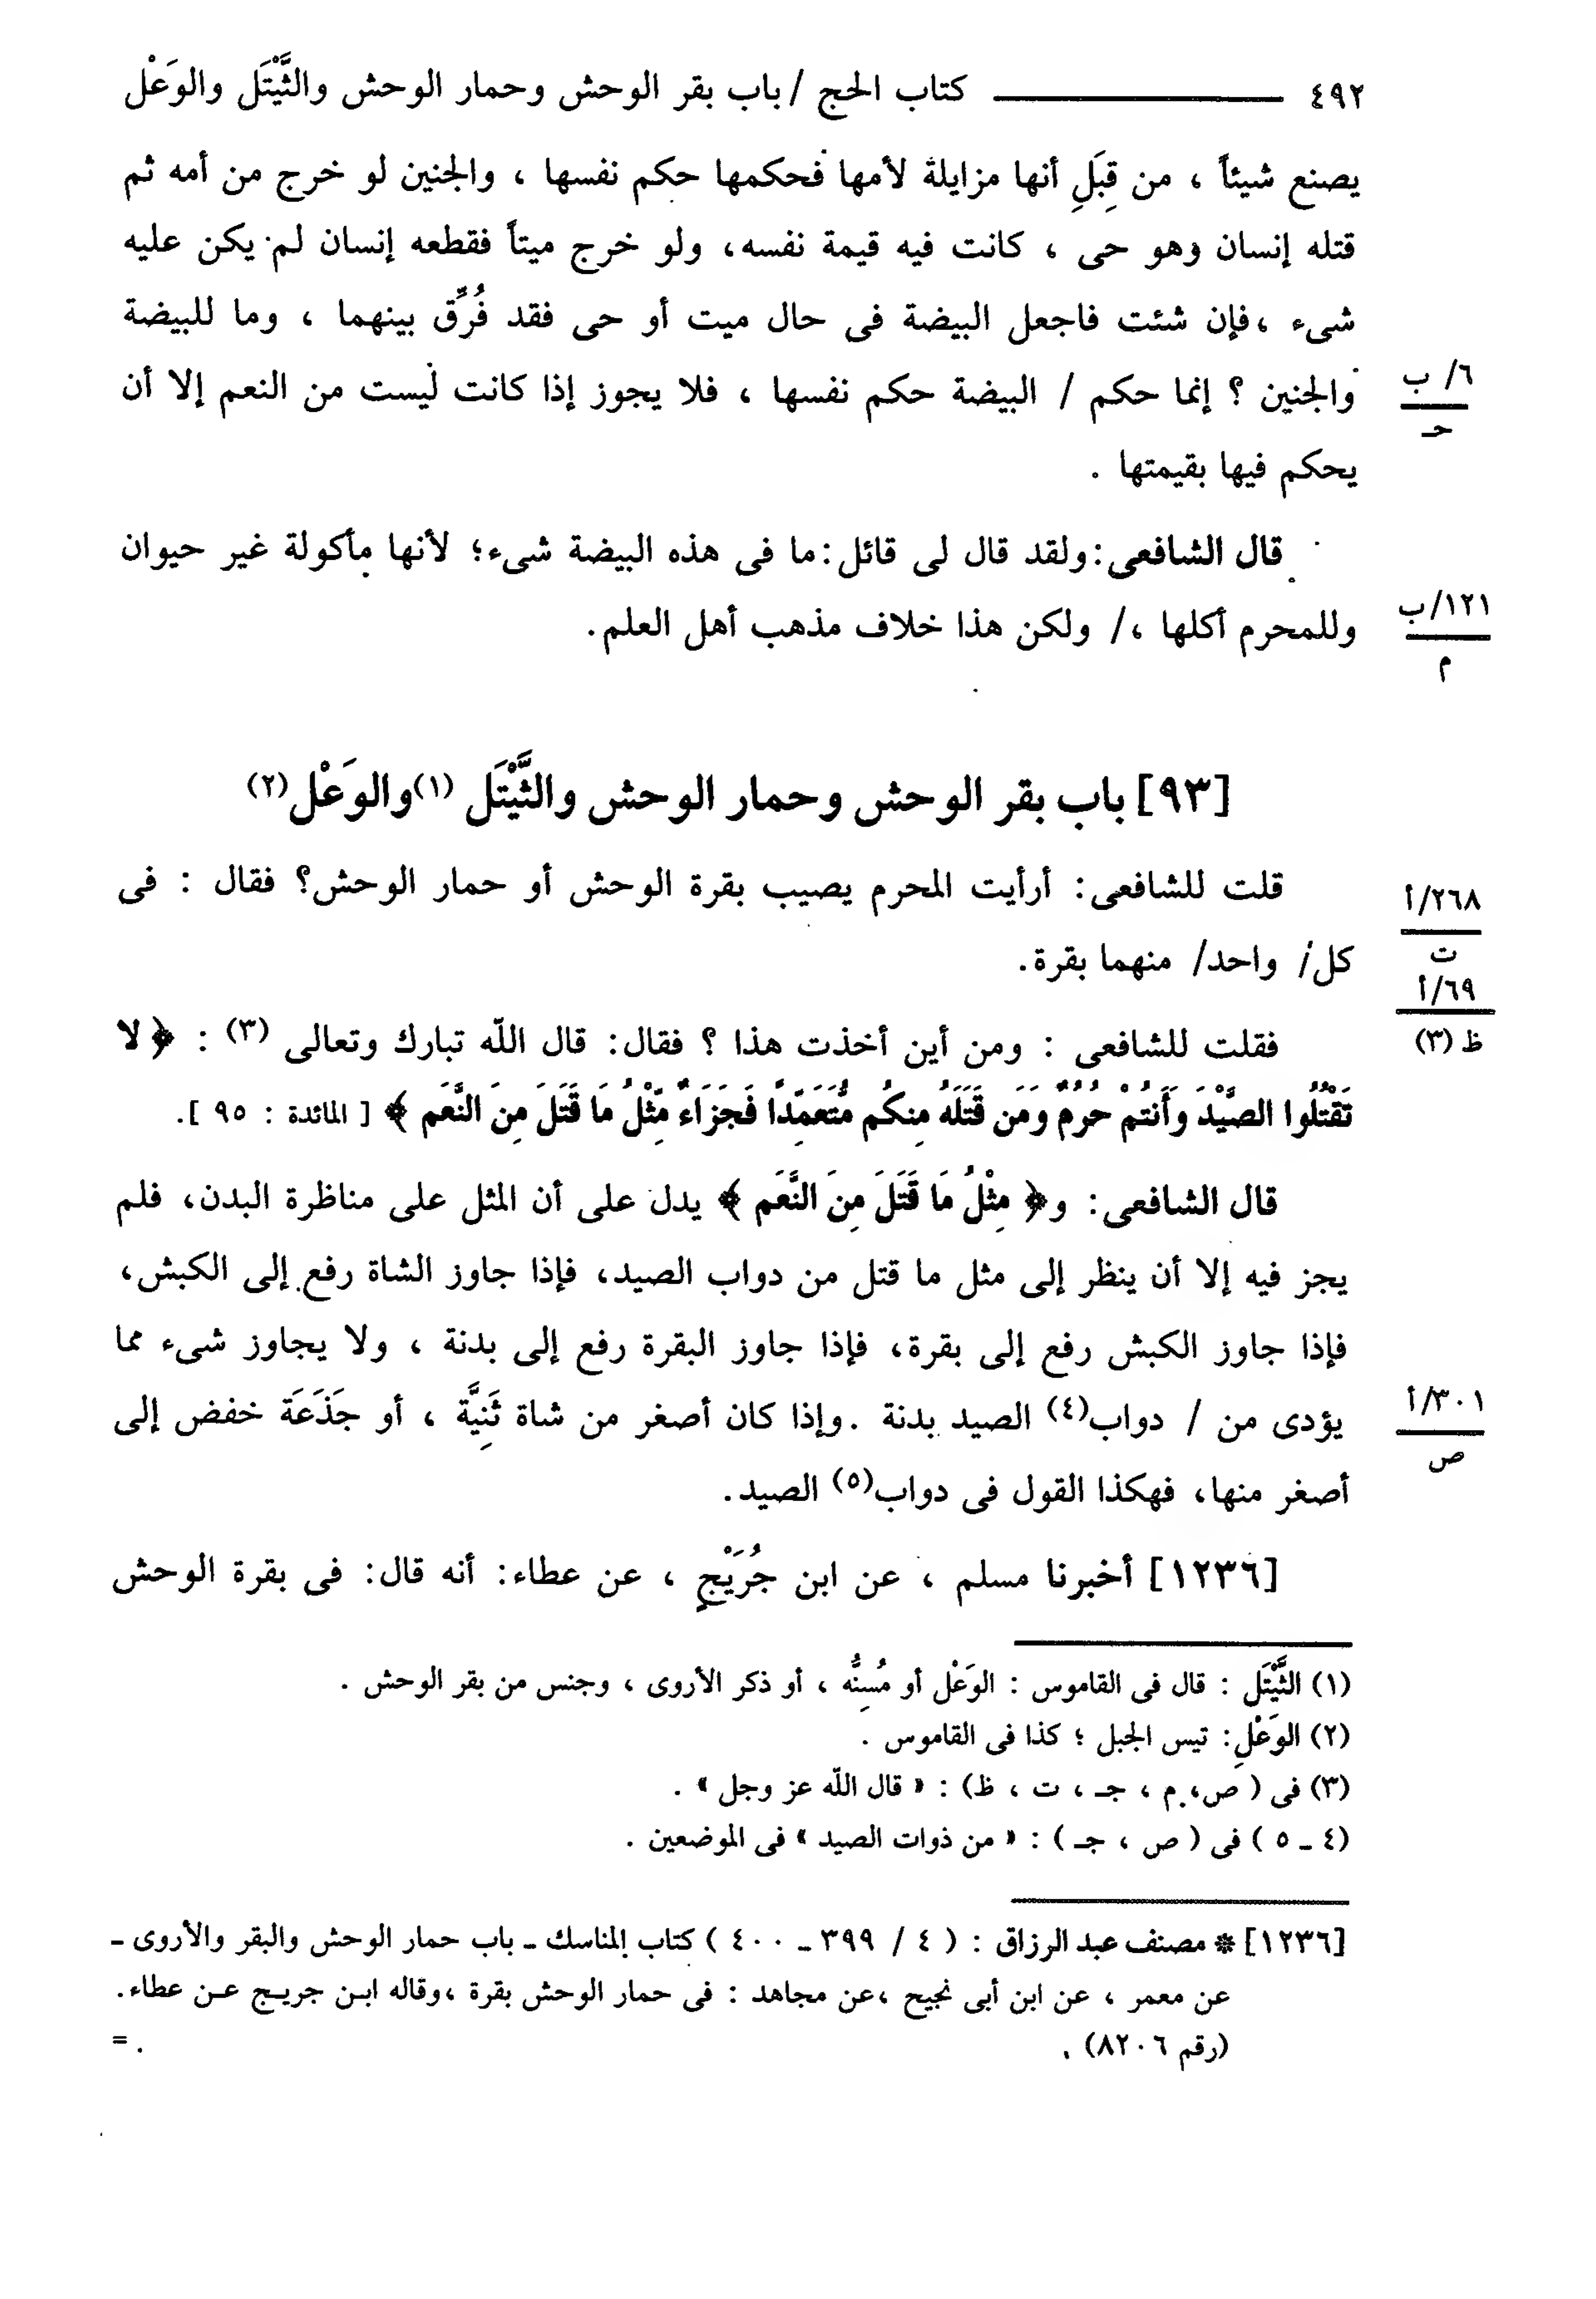 ٤٩٢ ـــــــــــــ كتاب الحج / باب بقر الوحش وحمار الوحش والثَّيْتَل والوَعْل
يصنع شيئاً ، من قِبَلِ أنها مزايلة لأمها فحكمها حكم نفسها ، والجنين لو خرج من أمه ثم
قتله إنسان وهو حى ، كانت فيه قيمة نفسه، ولو خرج ميتاً فقطعه إنسان لم يكن عليه
شىء ،فإن شئت فاجعل البيضة فى حال ميت أو حى فقد فُرِّق بينهما ، وما للبيضة
والجنين ؟ إنما حكم / البيضة حكم نفسها ، فلا يجوز إذا كانت ليست من النعم إلا أن
٦/ ب
حـ
يحكم فيها بقيمتها .
قال الشافعى:ولقد قال لى قائل:ما فى هذه البيضة شىء؛ لأنها مأكولة غير حيوان
وللمحرم أكلها ،/ ولكن هذا خلاف مذهب أهل العلم.
١٢١/ب
م
[٩٣] باب بقر الوحش وحمار الوحش والثَّيْتَل (١)والوَعْل(٢)
قلت للشافعى: أرأيت المحرم يصيب بقرة الوحش أو حمار الوحش؟ فقال : فى
٢٦٨/أ
ت
كل/ واحد/ منهما بقرة.
٦٩/أ
ظ (٣)
فقلت للشافعى : ومن أين أخذت هذا ؟ فقال: قال اللّه تبارك وتعالى (٣) : ﴿ لا
تَقْتُلُوا الصَّيْدَ وَأَنتُمْ حُرُمٌ وَمَن قَتَلَهُ مِنكُم مُّتَعَمِّدًا فَجَزَاءٌ مِّثْلُ مَا قَتَلَ مِنَ النَّعَمِ ﴾ [ المائدة : ٩٥ ].
قال الشافعى: و﴿ مِثْلُ مَا قَتَلَ مِنَ النَّعَمِ ﴾ يدل على أن المثل على مناظرة البدن، فلم
يجز فيه إلا أن ينظر إلى مثل ما قتل من دواب الصيد، فإذا جاوز الشاة رفع إلى الكبش،
فإذا جاوز الكبش رفع إلى بقرة، فإذا جاوز البقرة رفع إلى بدنة ، ولا يجاوز شىء مما
يؤدى من / دواب(٤) الصيد بدنة .وإذا كان أصغر من شاة ثَنِيَّة ، أو جَذَعَة خفض إلى
٣٠١/أ
ص
أصغر منها، فهكذا القول فى دواب(٥) الصيد.
[١٢٣٦] أخبرنا مسلم ، عن ابن جُرَيْجٍ ، عن عطاء: أنه قال: فى بقرة الوحش
(١) الثَّيْتَل : قال فى القاموس : الوَعْل أو مُسِنُّه ، أو ذكر الأروى ، وجنس من بقر الوحش .
(٢) الوَعْلِ: تيس الجبل ؛ كذا فى القاموس .
(٣) فى ( ص، م ، جـ ، ت ، ظ) : « قال اللّه عز وجل » .
(٤ ـ ٥ ) فى ( ص ، جـ ) : « من ذوات الصيد » فى الموضعين .
[١٢٣٦] * مصنف عبد الرزاق : ( ٤ / ٣٩٩ ـ ٤٠٠ ) كتاب المناسك ـ باب حمار الوحش والبقر والأروى ـ
عن معمر ، عن ابن أبى نجيح ،عن مجاهد : فى حمار الوحش بقرة ،وقاله ابـن جريـج عـن عطاء.
(رقم ٨٢٠٦) . =